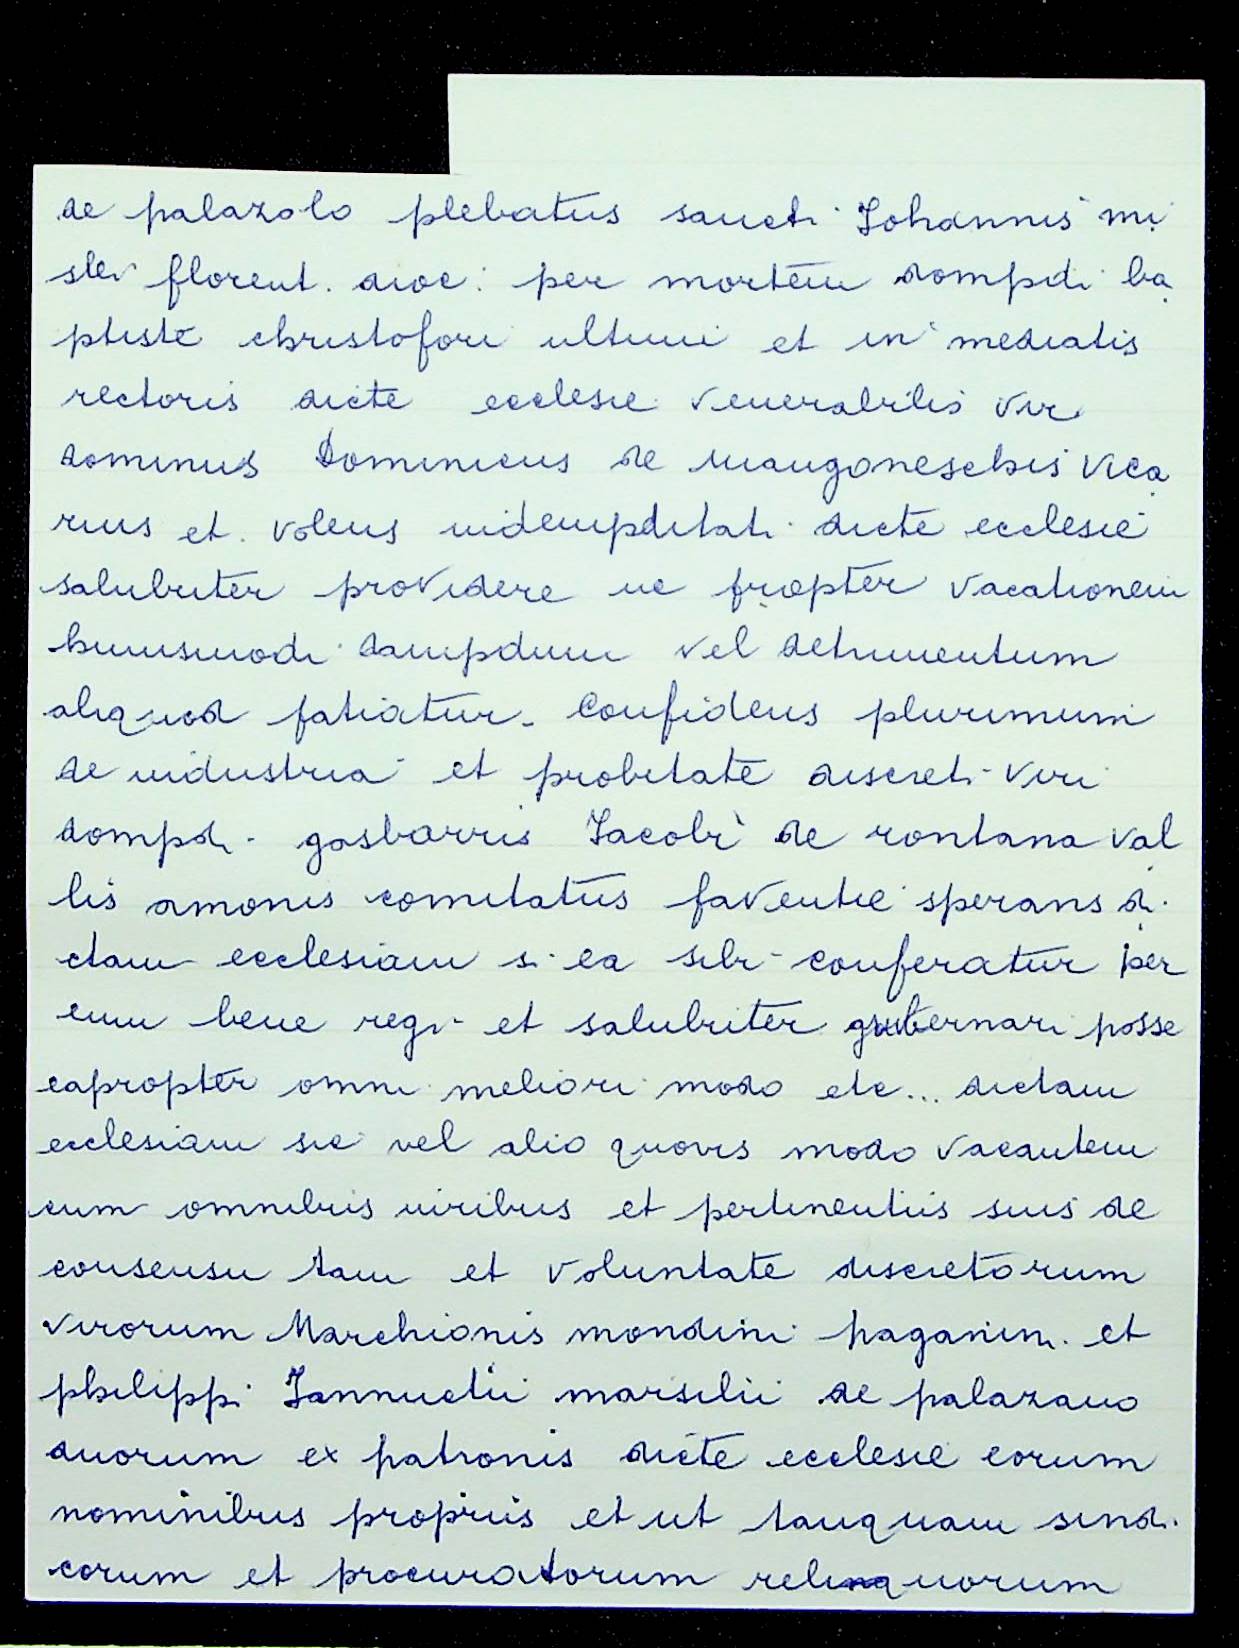 de palazolo plebatus sancti Johannis mi
sler florent. dioc: per mortem dompdi ba
ptiste christofori ultimi et in mediatis
rectoris dicte ecclesie venerabilis vir
dominus Dominicus de mangoneschis vica
rius et volens indempditati dicte ecclesie
salubriter providere ne propter vacationem
huiusmodi dampdum vel detrimentum
aliquod patiatur. Confidens plurimum
de industria et probitate discreti viri
dompdi gasbarris Jacobi de rontana val
lis amonis comitatus faventie sperans di
ctam ecclesiam si ea sibi conferatur per
eum bene regi et salubriter gubernari posse
eapropter omni meliori modo etc... dictam
ecclesiam sic vel alio quovis modo vacantem
cum omnibus iuribus et pertinentiis suis de
consensu tam et voluntate discretorum
virorum Marchionis mondini paganini et
philippi Jannuctii marsilii de palazano
duorum ex patronis dicte ecclesie eorum
nominibus propriis et ut tanquam sindi
corum et procuratorum reliquorum